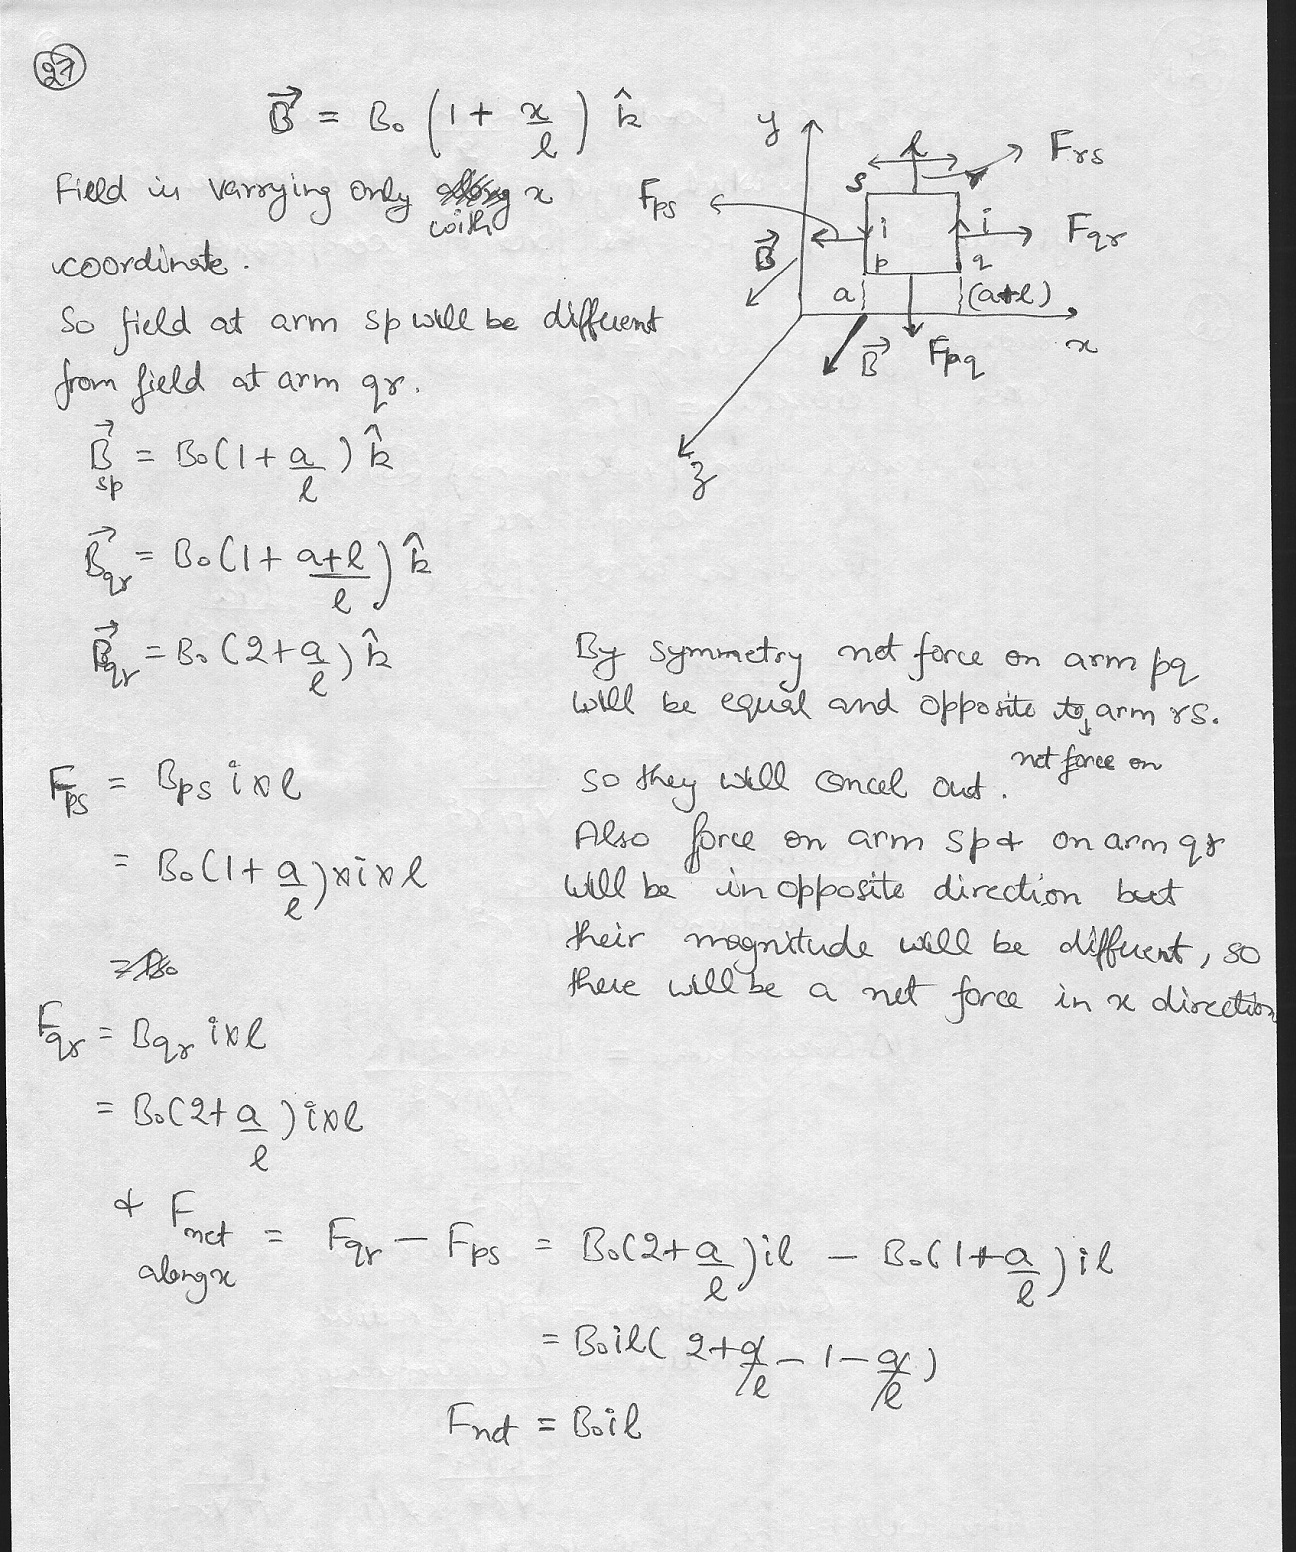 27
B⃗ = B₀ (1 + x/l) k̂
Field is varrying only with x
coordinate.
So field at arm sp will be different
from field at arm qr.
B⃗sp = B₀(1 + a/l) k̂
B⃗qr = B₀(1 + (a+l)/l) k̂
B⃗qr = B₀(2 + a/l) k̂
Fps = Bps i×l
= B₀(1 + a/l)×i×l
Fqr = Bqr i×l
= B₀(2 + a/l) i×l
y
l
Frs
s
Fps
i
i
Fqr
B⃗
p
q
a
(a+l)
x
B⃗
Fpq
z
By symmetry net force on arm pq
will be equal and opposite to net force on arm rs.
so they will cancel out.
Also force on arm sp & on arm qr
will be in opposite direction but
their magnitude will be different, so
there will be a net force in x direction
& Fnet along x = Fqr − Fps = B₀(2 + a/l)il − B₀(1 + a/l)il
= B₀il(2 + a/l − 1 − a/l)
Fnet = B₀il